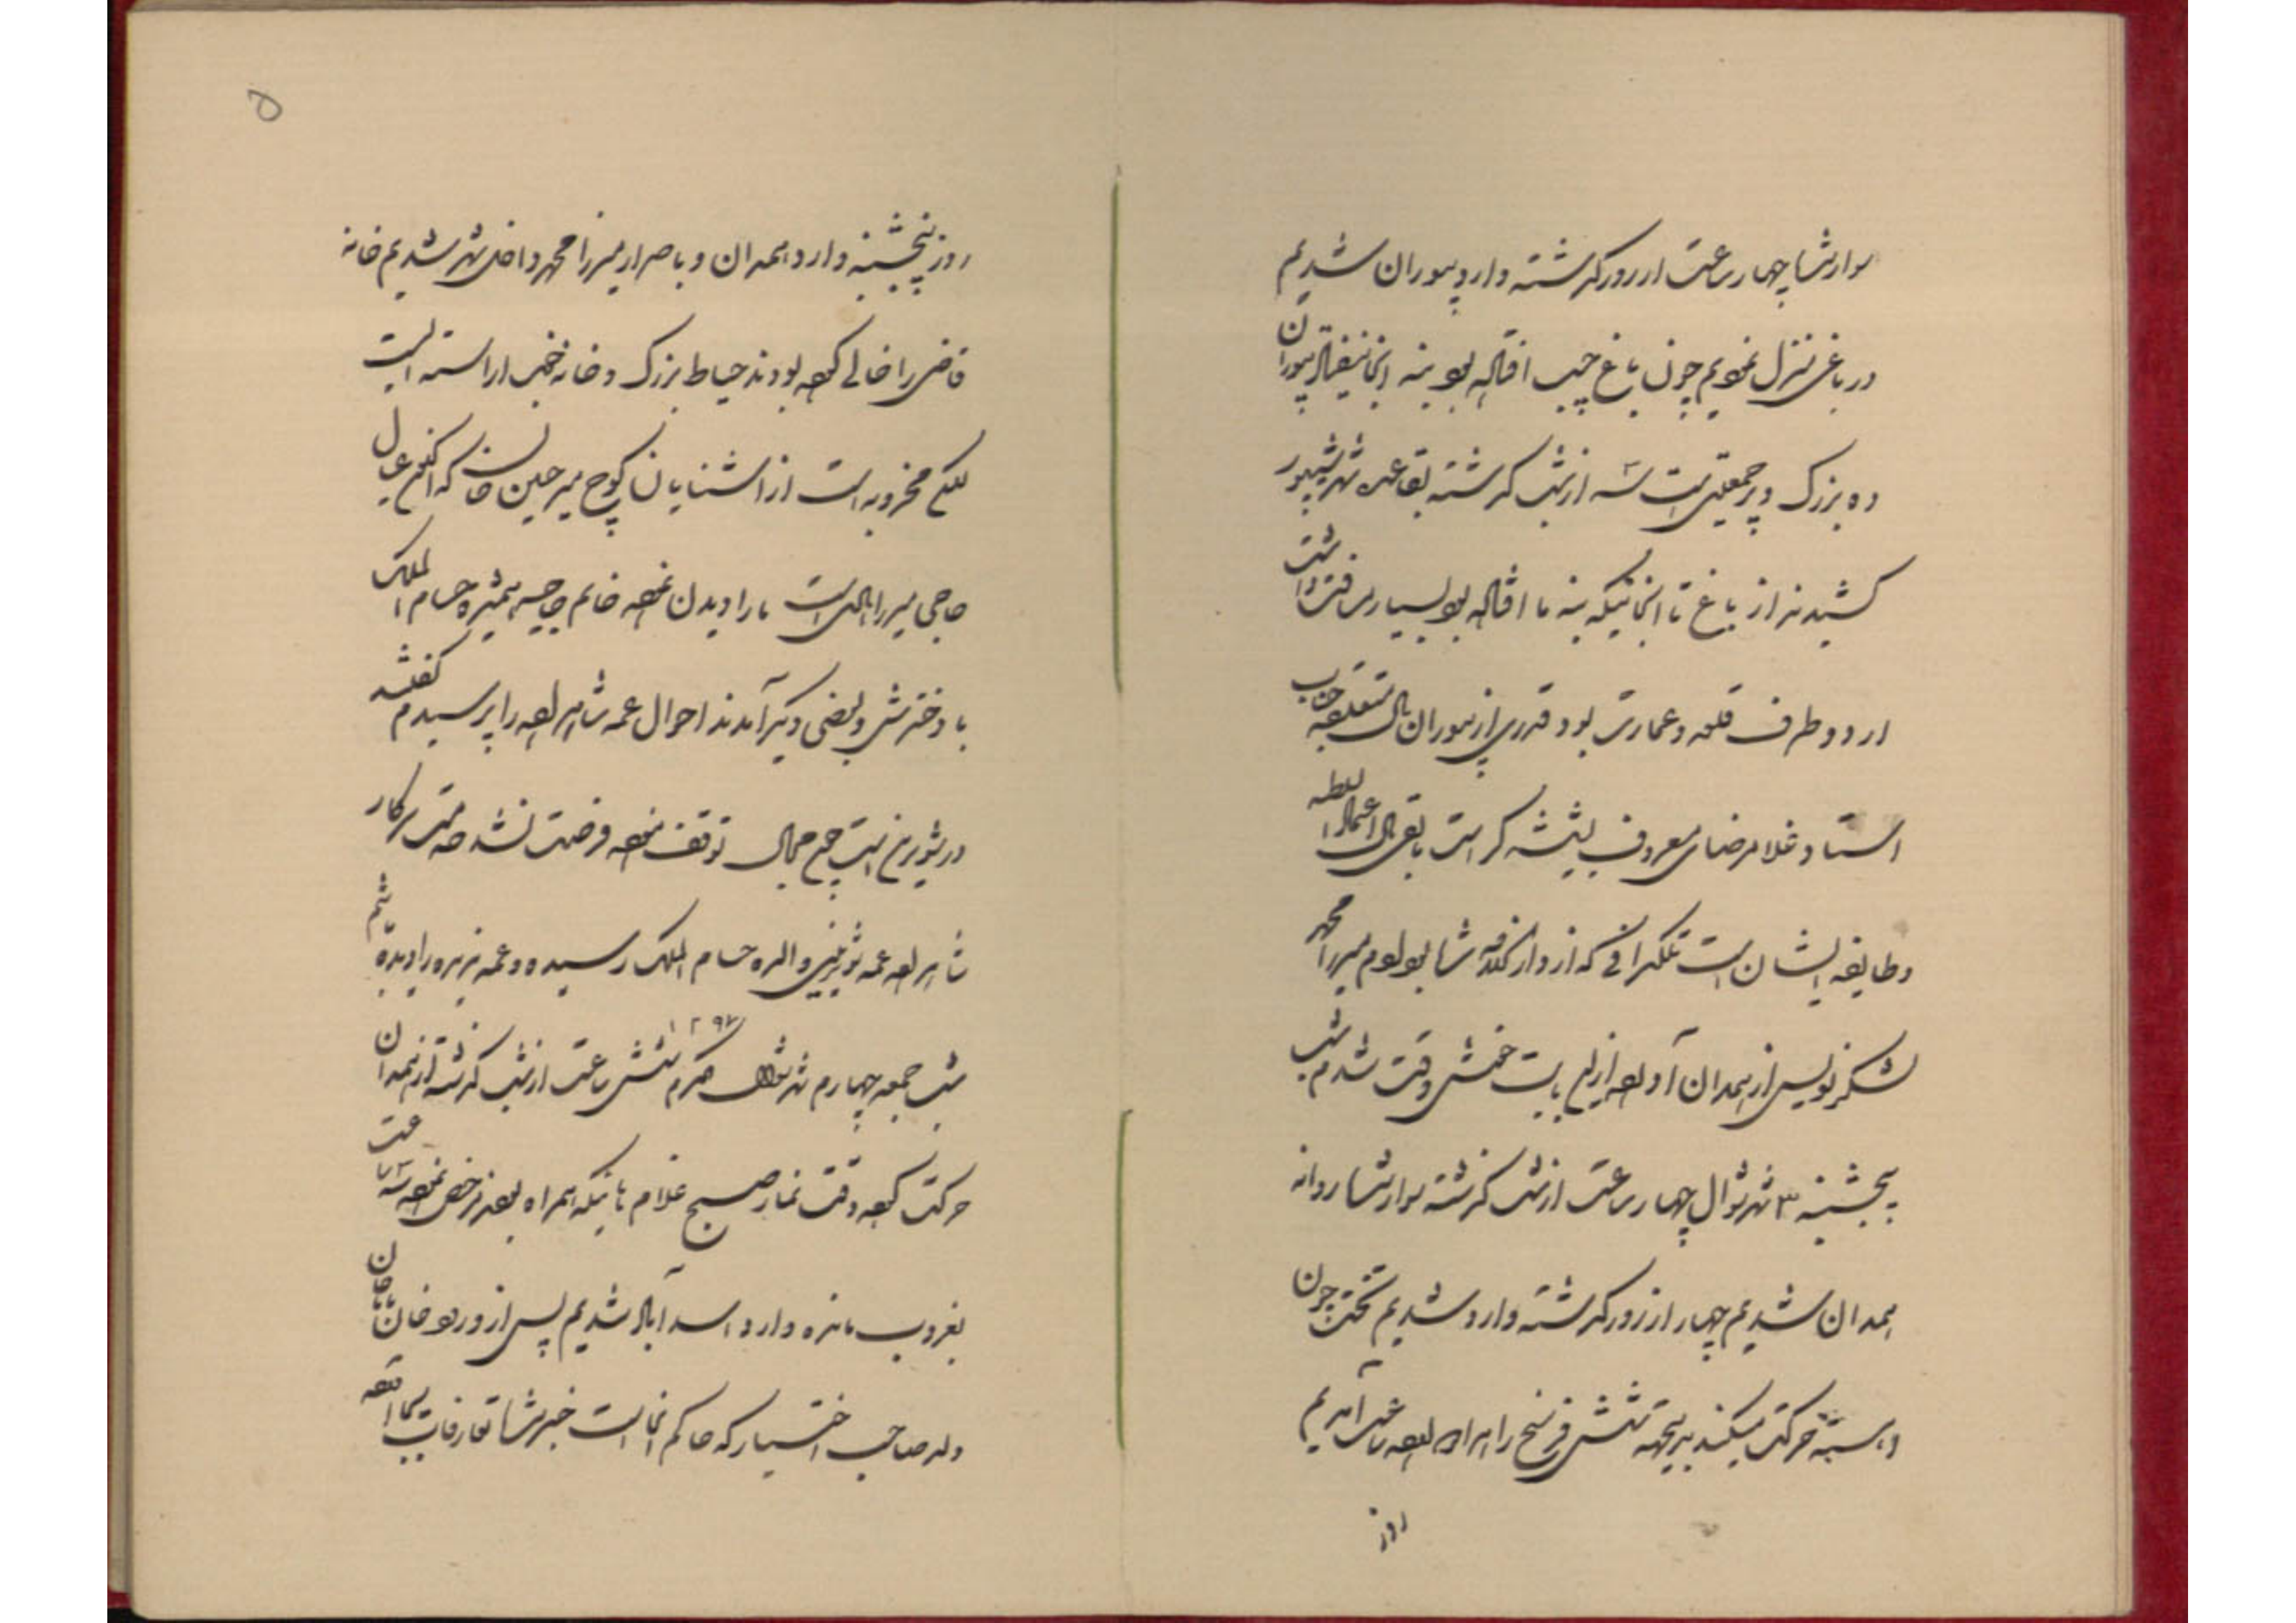 سوار شده چهار ساعت از روز گذشته وارد پیوران شدیم
در باغی منزل نمودیم چون باغ چپ افتاله بود بنه انجا نیفتاد پیوران
ده بزرگ و پر جمعیتی است سه از شب گذشته بقاعده شهر شیپور
کشیدند از باغ تا انجائیکه بنه ما افتاله بود بسیار مسافت داشت
از دو طرف قلعه و عمارت بود قدری از پیوران مال متعلقه جناب
استاد غلامرضای معروف بشیشه گر است باقی مال اعتماد السلطنه
و طایفه ایشان است تلگرافی که از شما بود بود میرزا محمد
لشکر نویس از همدان آورده بود از این بابت خوش وقت شدم شب
پنجشنبه ۳ شهر شوال چهار ساعت از شب گذشته سوار شده روانه
همدان شدیم چهار از روز گذشته وارد شدیم تخت چون
آهسته حرکت میکند بدینجهة شش فرسخ راه را ده ساعت آمدیم
روز
۵
روز پنجشنبه وارد همدان و باصرار میرزا محمد داخل شهر شدیم خانه
قاضی را خالی کرده بودند حیاط بزرگ و خانه خوب اراسته ایست
لکن مخروبه است از اشنایان کوچ میر حسین خان که اکنون عیال
حاجی میرزا است ما را دیدن نموده خانم حاجیه همشیره حسام الملک
با دخترش و بعضی دیگر آمدند احوال عمه شاهزاده را پرسیدم گفتند
در شورین است توقف نموده فرصت نشد خدمت سرکار
شاهزاده عمه والده حسام الملک رسیده و عمه را دیده باشم
شب جمعه چهارم شهر شوال مکرم ۱۲۹۷ شش ساعت از شب گذشته از همدان
حرکت کرده وقت نماز صبح غلام هائیکه همراه بودند مرخص نموده سه ساعت
بغروب مانده وارد اسد آباد شدیم پس از ورود خان بابا خان
ولد صاحب اختیار که حاکم انجا است خبر شده تعارفات بجا آورده